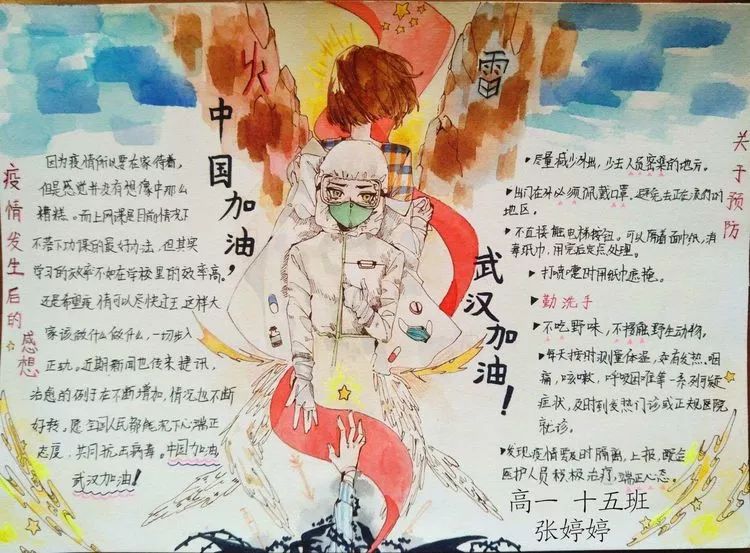 火
雷
中国加油，
武汉加油！
疫情发生后的
感想
因为疫情所以要在家待着，
但是感觉并没有想像中那么
糟糕。而上网课是目前情况下
不落下功课的最好办法，但其实
学习的效率不如在学校里的效率高。
还是希望疫情可以尽快过去，这样大
家该做什么做什么，一切步入
正轨。近期新闻也传来捷讯，
治愈的例子在不断增加，情况也不断
好转。愿全国人民都能沉下心，端正
态度，共同抗击病毒。中国加油，
武汉加油！
关于预防
尽量减少外出，少去人员密集的地方。
出门在外必须佩戴口罩，避免去正在流行的
地区。
不直接触电梯按钮。可以隔着面巾纸，消
毒纸巾，用完后定点处理。
打喷嚏时用纸巾遮掩。
勤洗手
不吃野味，不接触野生动物，
每天按时测量体温，若有发热、咽
痛，咳嗽，呼吸困难等一系列可疑
症状，及时到发热门诊或正规医院
就诊。
发现疫情要及时隔离，上报，配合
医护人员积极治疗，端正心态。
高一 十五班
张婷婷